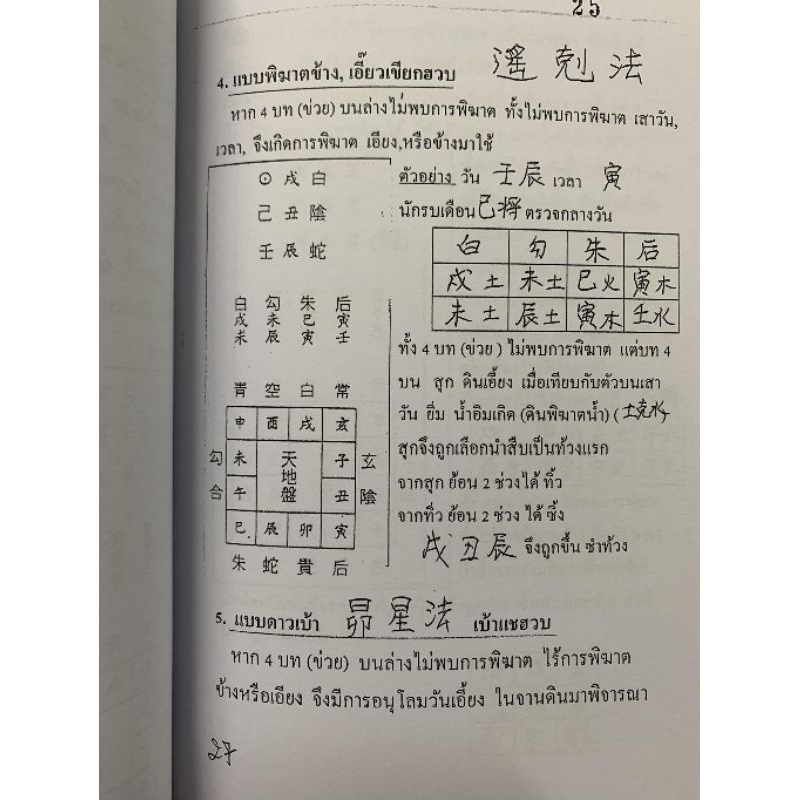 25
4. แบบพิฆาตข้าง, เอี๊ยวเขียกฮวบ 遙尅法
หาก 4 บท (ข่วย) บนล่างไม่พบการพิฆาต ทั้งไม่พบการพิฆาต เสาวัน,
เวลา, จึงเกิดการพิฆาต เอียง,หรือข้างมาใช้
⊙ 戌 白
己 丑 陰
壬 辰 蛇
白 勾 朱 后
戌 未 巳 寅
未 辰 寅 壬
青 空 白 常
申 酉 戌 亥
勾 未 天 子 玄
地
合 午 盤 丑 陰
巳 辰 卯 寅
朱 蛇 貴 后
ตัวอย่าง วัน 壬辰 เวลา 寅
นักรบเดือน 巳将 ตรวจกลางวัน
白 勾 朱 后
戍土 未土 巳火 寅木
未土 辰土 寅木 壬水
ทั้ง 4 บท (ข่วย ) ไม่พบการพิฆาต แต่บท 4
บน สุก ดินเอี้ยง เมื่อเทียบกับตัวบนเสา
วัน ยิ่ม น้ำอิมเกิด (ดินพิฆาตน้ำ) (土克水)
สุกจึงถูกเลือกนำสืบเป็นท้วงแรก
จากสุก ย้อน 2 ช่วงได้ ทิ้ว
จากทิ่ว ย้อน 2 ช่วง ได้ ซิ้ง
戍丑辰 จึงถูกขึ้น ซำท้วง
5. แบบดาวเบ้า 昴星法 เบ้าแชฮวบ
หาก 4 บท (ข่วย) บนล่างไม่พบการพิฆาต ไร้การพิฆาต
ข้างหรือเอียง จึงมีการอนุโลมวันเอี้ยง ในจานดินมาพิจารณา
27